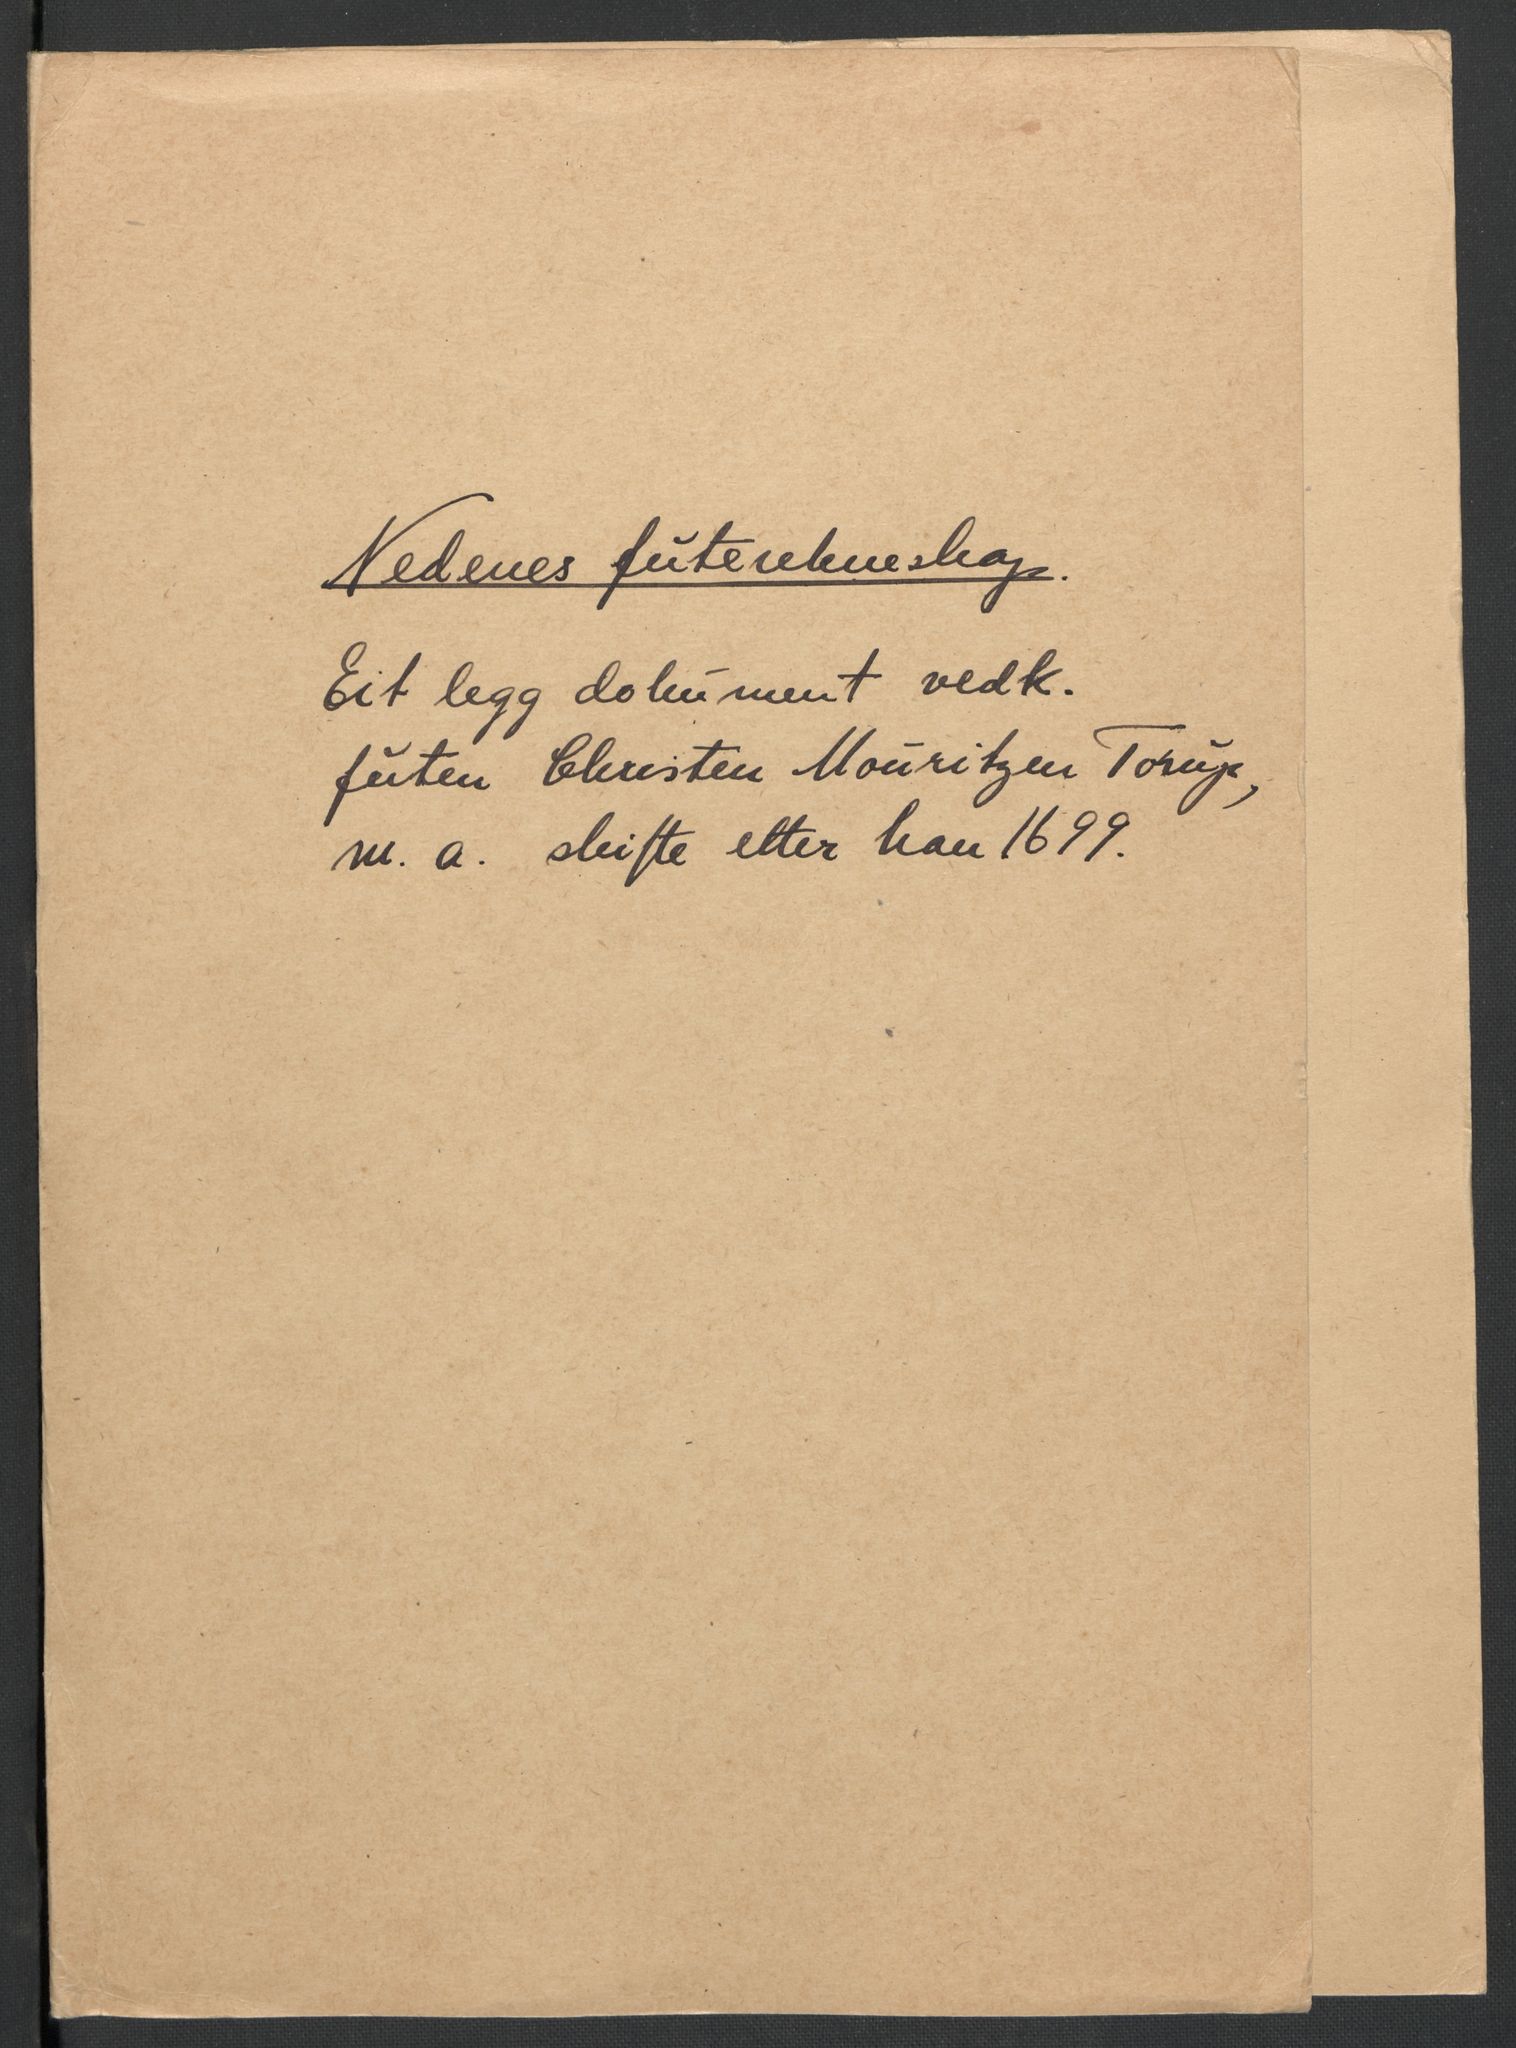 Nedenes futerekneskap.
Eit legg dokument vedk.
futen Christen Mouritzen Torup,
m. a. skifte etter han 1699.